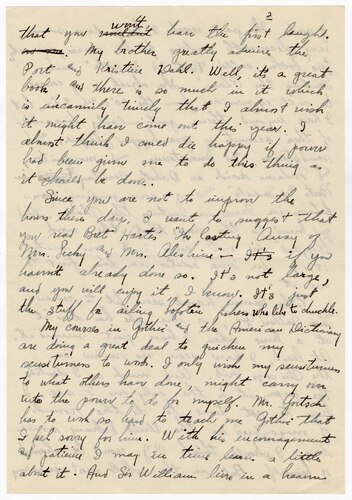 2
that you won't have the first laugh.
My brother greatly admires the
Port and Kristine Dahl. Well, it's a great
book and there is so much in it which
is uncannily timely that I almost wish
it might have come out this year. I
almost think I could die happy if power
had been given me to do this thing as
it should be done.
Since you are not to improve the
hours these days, I want to suggest that
you read Bret Harte's "The Casting Away of
Mrs. Lecky and Mrs. Aleshine — It's if you
haven't already done so. It's not large,
and you will enjoy it I know. It's just
the stuff for ailing Lofoten fishers who like to chuckle.
My courses in Gothic and the American Dictionary
are doing a great deal to quicken my
sensitiveness to words. I only wish my sensitiveness
to what others have done, might carry over
into the power to do for myself. Mr.
has to work so hard to teach me Gothic that
I feel sorry for him. With his encouragement
and patience I may in time learn a little
about it. And Sir William lives in a heaven